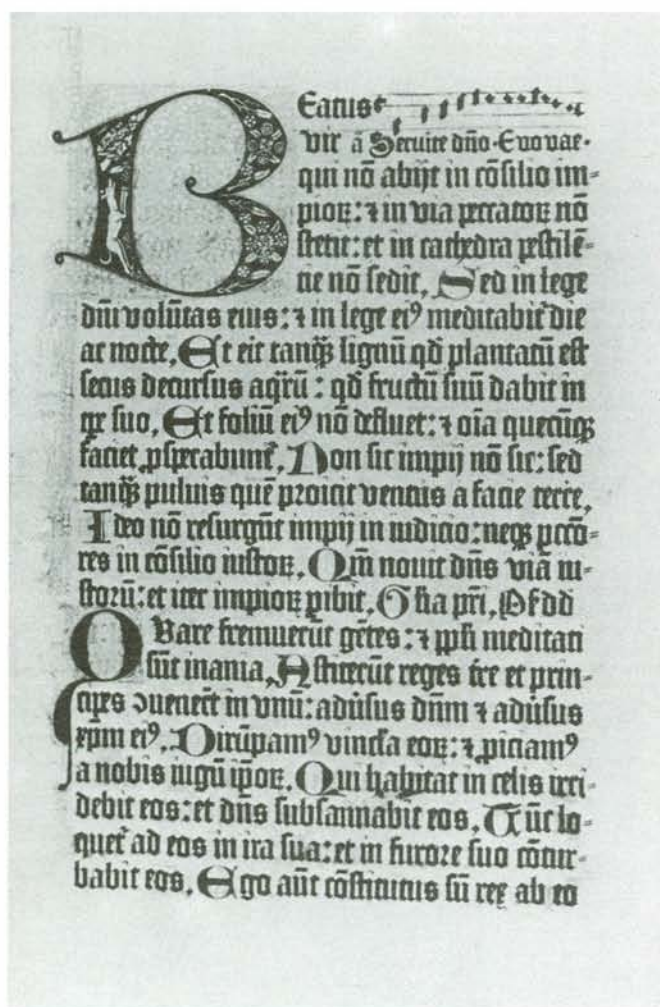 Beatus
vir ā Seruite dño· Euouae·
qui nō abijt in cōsilio im=
pioꝝ: ⁊ in via peccatoꝝ nō
stetit: et in cathedra pestilē=
tie nō sedit, Sed in lege
dñi volūtas eius: ⁊ in lege eiꝰ meditabit᷑ die
ac nocte, Et erit tanqȝ lignū qd̄ plantatū est
secus decursus aq̄rū: qd̄ fructū suū dabit in
tꝑe suo, Et foliū eiꝰ nō defluet: ⁊ oīa quecūqȝ
faciet ꝓsperabunt᷑, Non sic impij nō sic: sed
tanqȝ puluis quē proicit ventus a facie terre,
Ideo nō resurgūt impij in iudicio: neqȝ pctō=
res in cōsilio iustoꝝ, Qm̄ nouit dñs viā iu=
storū: et iter impioꝝ ꝑibit, Glia pr̄i, Ps dd
Quare fremuerūt gētes: ⁊ ppl̄i meditati
sūt inania, Astiterūt reges tr̄e et prin=
cipes ꝯuenert̄ in vnū: aduersus dñm ⁊ aduersus
xp̄m eiꝰ, Dirūpamꝰ vincl̄a eoꝝ: ⁊ ꝓiciamꝰ
a nobis iugū ip̄oꝝ, Qui habitat in celis irri=
debit eos: et dñs subsannabit eos, Tūc lo=
quet᷑ ad eos in ira sua: et in furore suo cōtur=
babit eos, Ego aūt cōstitutus sū rex ab eo